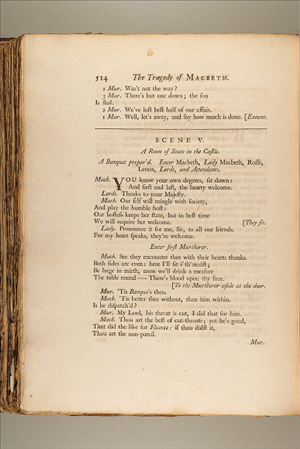 514 The Tragedy of MACBETH.
1 Mur. Was't not the way?
3 Mur. There's but one down; the son
Is fled.
2 Mur. We've lost best half of our affair.
1 Mur. Well, let's away, and say how much is done. [Exeunt.
SCENE V.
A Room of State in the Castle.
A Banquet prepar'd. Enter Macbeth, Lady Macbeth, Rosse,
Lenox, Lords, and Attendants.
Macb. YOU know your own degrees, sit down:
And first and last, the hearty welcome.
Lords. Thanks to your Majesty.
Macb. Our self will mingle with society,
And play the humble host:
Our hostess keeps her state, but in best time
We will require her welcome. [They sit.
Lady. Pronounce it for me, Sir, to all our friends.
For my heart speaks, they're welcome.
Enter first Murtherer.
Macb. See they encounter thee with their hearts thanks.
Both sides are even: here I'll sit i'th' midst;
Be large in mirth, anon we'll drink a measure
The table round — There's blood upon thy face.
[To the Murtherer aside at the door.
Mur. 'Tis Banquo's then.
Macb. 'Tis better thee without, than him within.
Is he dispatch'd?
Mur. My Lord, his throat is cut, I did that for him.
Macb. Thou art the best of cut-throats; yet he's good,
That did the like for Fleance: if thou didst it,
Thou art the non-pareil.
Mur.